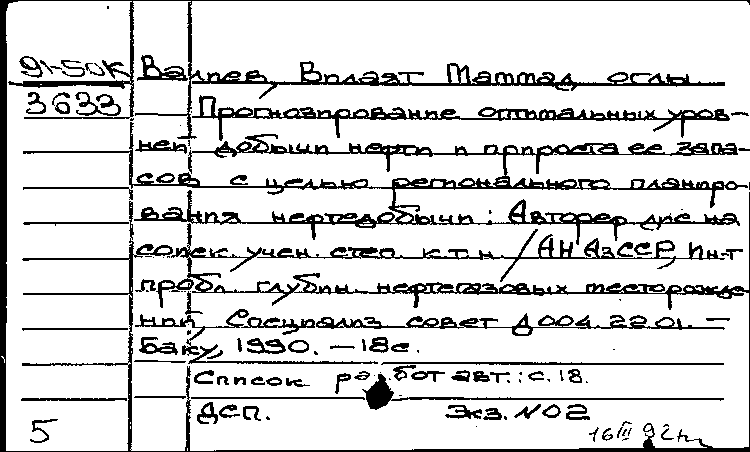 91-50К Валиев, Вилаят Маммад оглы
3633 Прогнозирование оптимальных уров-
ней добычи нефти и прироста ее запа-
сов с целью регионального планиро-
вания нефтедобычи: Автореф дис на
соиск. учен. степ. к.т.н. / АН АзССР, Ин-т
пробл. глубин. нефтегазовых месторожде-
ний, Специализ совет Д 004.22.01. –
Баку, 1990. – 18с.
Список работ авт.: с. 18.
ДСП. Экз. №02
5 16 III 92